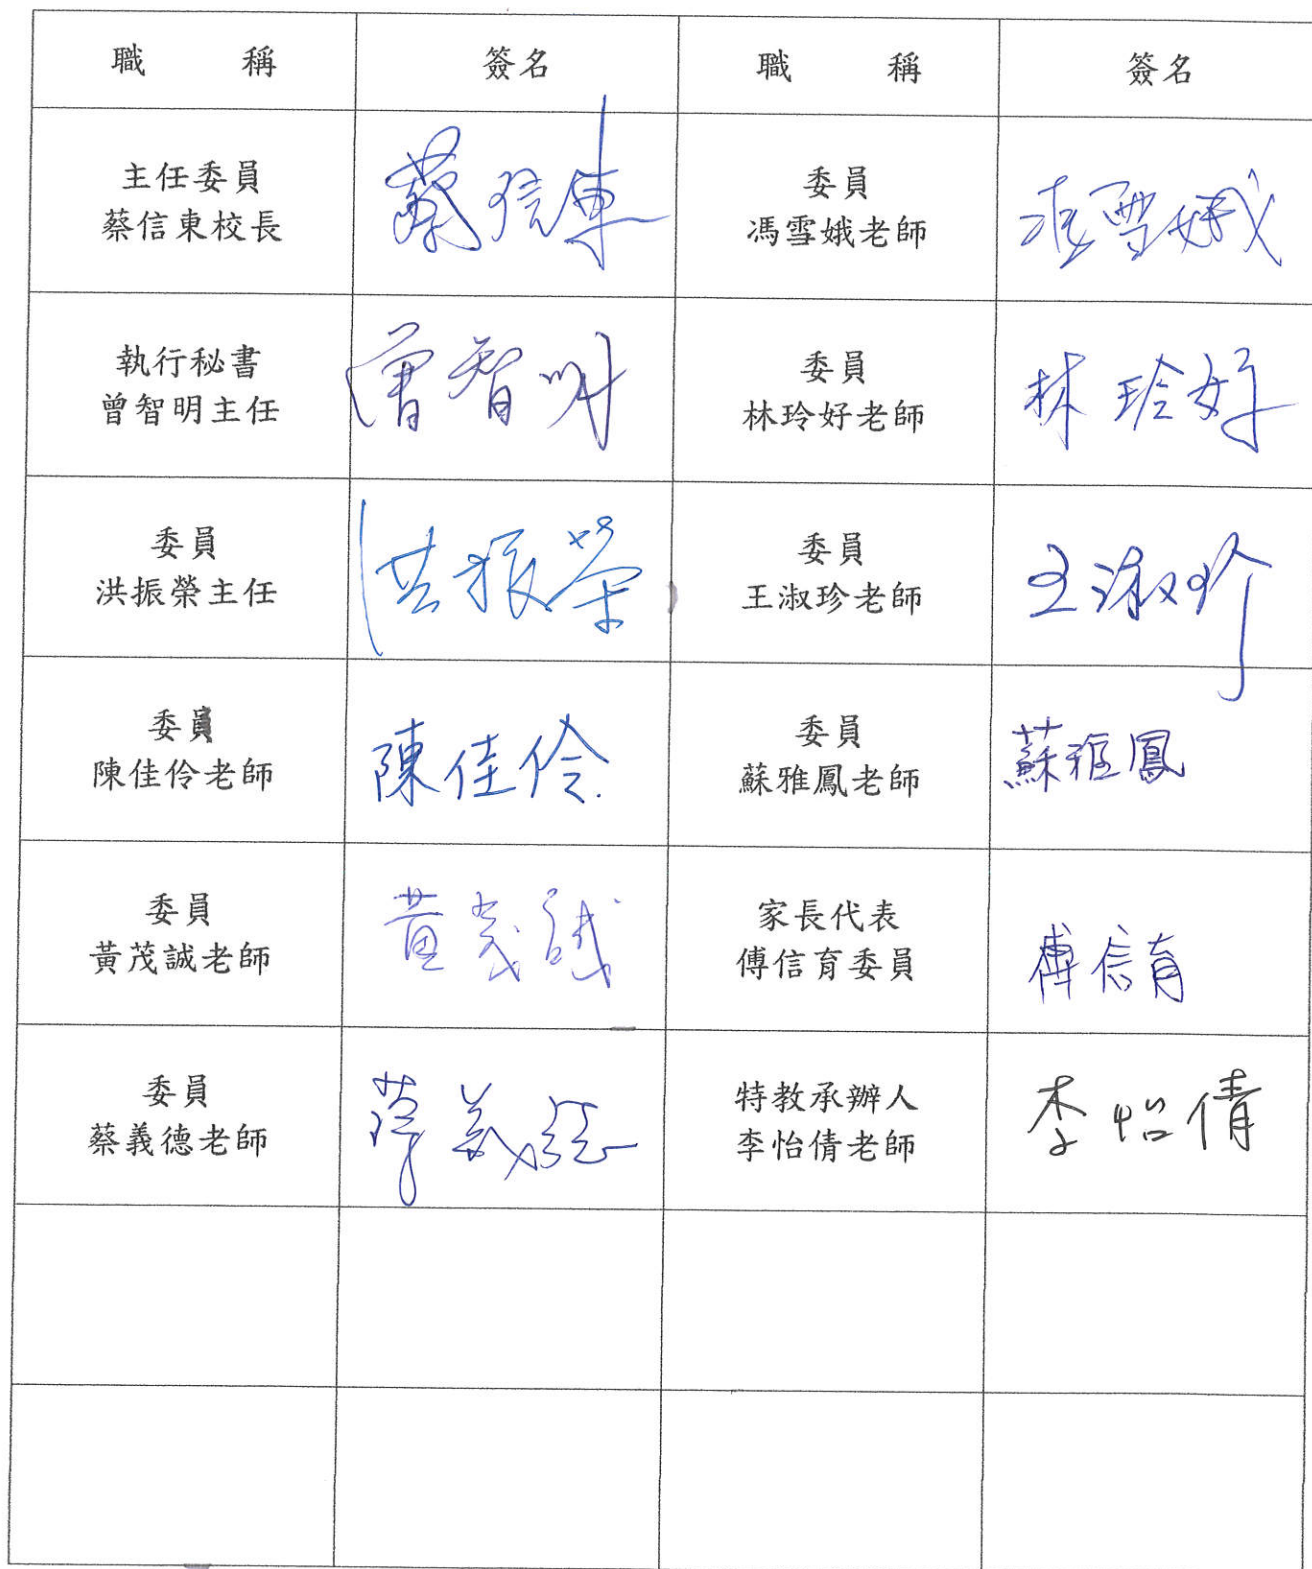 職 稱 簽名 職 稱 簽名
主任委員
蔡信東校長
蔡信東
委員
馮雪娥老師
馮雪娥
執行秘書
曾智明主任
曾智明
委員
林玲好老師
林玲好
委員
洪振榮主任
洪振榮
委員
王淑珍老師
王淑珍
委員
陳佳伶老師
陳佳伶
委員
蘇雅鳳老師
蘇雅鳳
委員
黃茂誠老師
黃茂誠
家長代表
傅信育委員
傅信育
委員
蔡義德老師
蔡義德
特教承辦人
李怡倩老師
李怡倩